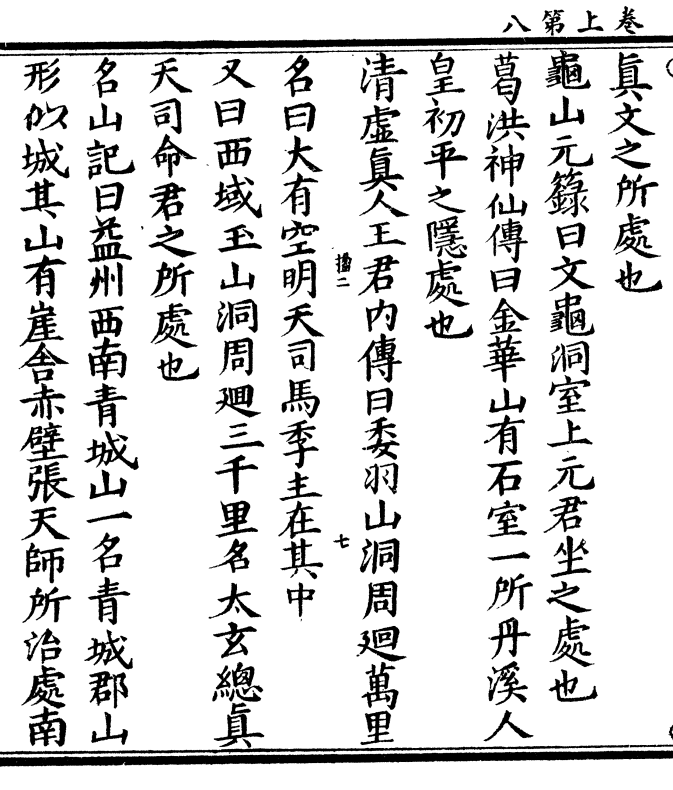 卷上第八
眞文之所處也
龜山元籙曰文龜洞室上元君坐之處也
葛洪神仙傳曰金華山有石室一所丹溪人
皇初平之隱處也
清虛眞人王君內傳曰委羽山洞周迴萬里
名曰大有空明天司馬季主在其中
又曰西域玉山洞周迴三千里名太玄總眞
天司命君之所處也
名山記曰益州西南青城山一名青城郡山
形似城其山有崖舍赤壁張天師所治處南
七